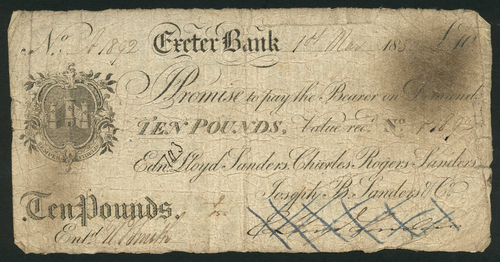 No. 1892 Exeter Bank 1st 18
I Promise to pay the Bearer on Demand
TEN POUNDS, Value recd. No.
Edn. Lloyd Sanders, Charles Rogers Sanders
Joseph B. Sanders & Co.
Ten Pounds.
Entd.